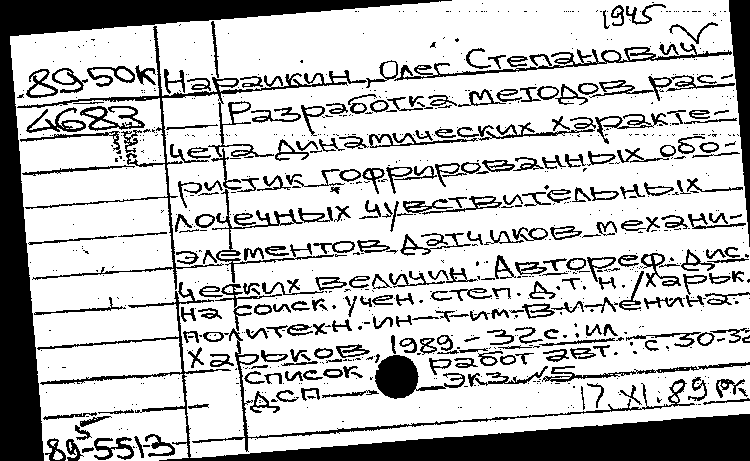 1945
89-50К Нарайкин, Олег Степанович
4683 Разработка методов рас-
чета динамических характе-
ристик гофрированных обо-
лочечных чувствительных
элементов датчиков механи-
ческих величин: Автореф. дис.
на соиск. учен. степ. д.т.н. /Харьк.
политехн. ин-т им. В.И. Ленина.-
Харьков, 1989.- 32 с.: ил.
Список работ авт.: с. 30-32
ДСП Экз. №5
17.XI.89 РК
89-5513
5